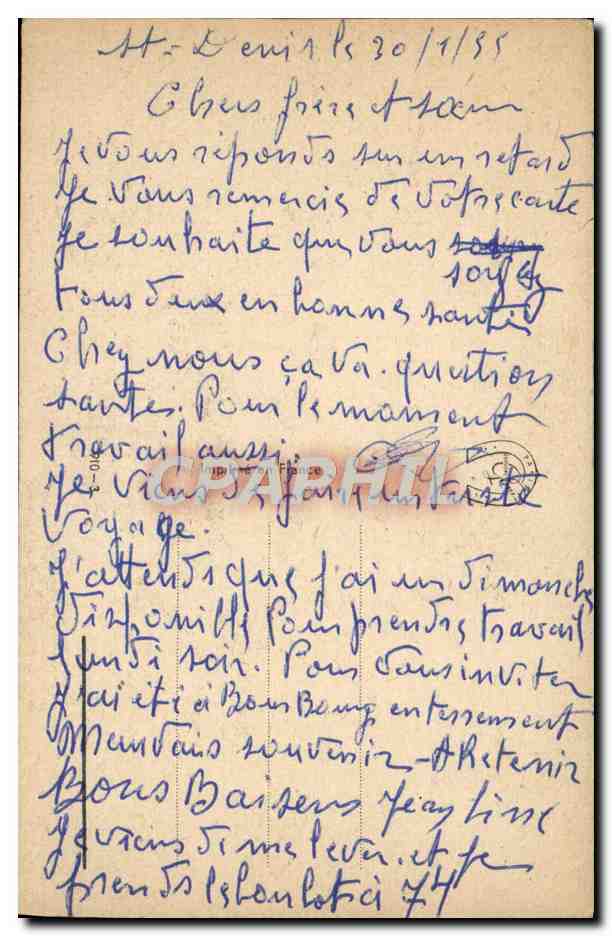 St-Denis le 30/1/55
Chers frère et sœur
Je vous réponds sur un retard
Je vous remercie de votre carte
Je souhaite que vous
soyez
tous deux en bonne santé
Chez nous ça va. question
santé. Pour le moment
travail aussi.
Imprimé en France
CPAPHIL
Je viens de faire un triste
voyage.
J'attends que j'ai un dimanche
disponible Pour prendre travail
Lundi soir. Pour vous inviter
J'ai été à BourBourg enterrement
Mauvais souvenir - A Retenir
Bons Baisers Jean
Je viens de me lever. et je
prends le boulot à 7H